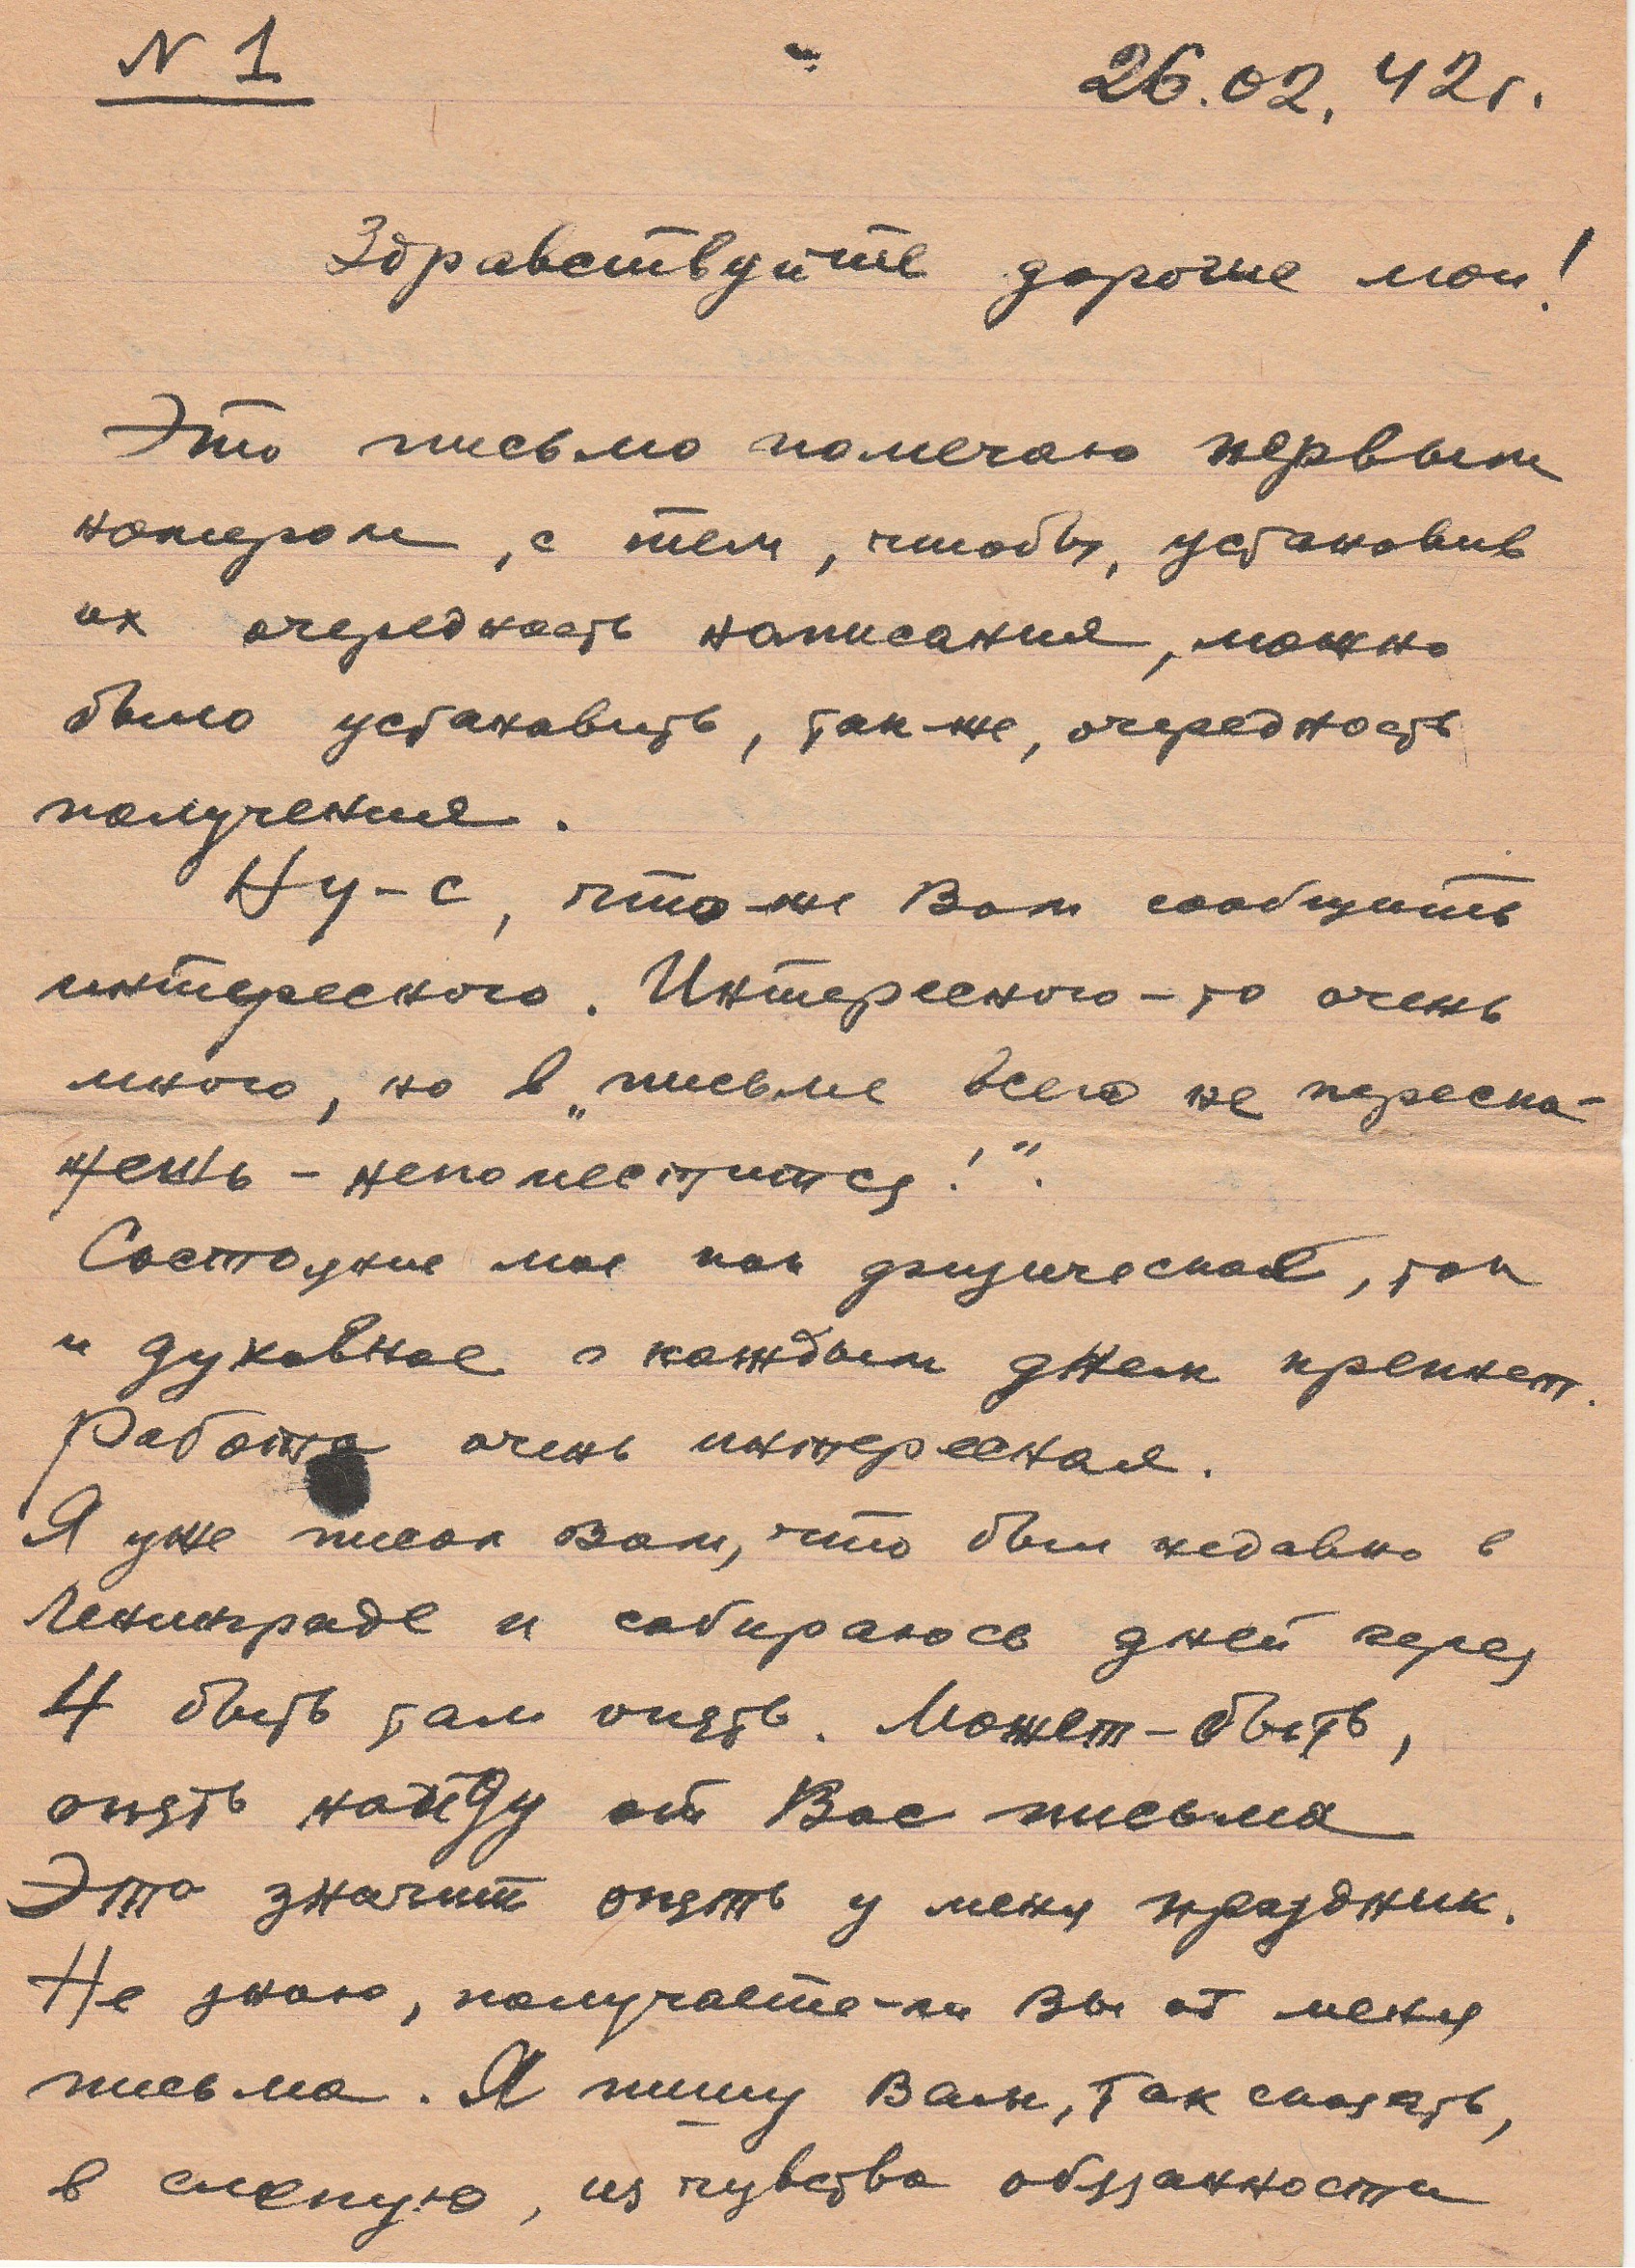 N 1
26.02.42г.
Здравствуйте дорогие мои!
Это письмо помечаю первым
номером, с тем, чтобы, установив
их очередность написания, можно
было установить, так-же, очередность
получения.
Ну-с, что-же Вам сообщить
интересного. Интересного-то очень
много, но в „письме всего не переска-
жешь - непоместится!".
Состояние мое как физическое, так
и духовное с каждым днем крепнет.
Работа очень интересная.
Я уже писал Вам, что был недавно в
Ленинграде и собираюсь дней через
4 быть там опять. Может-быть,
опять найду от Вас письма
Это значит опять у меня праздник.
Не знаю, получаете-ли Вы от меня
письма. Я пишу Вам, так сказать,
в слепую, из чувства обязанности